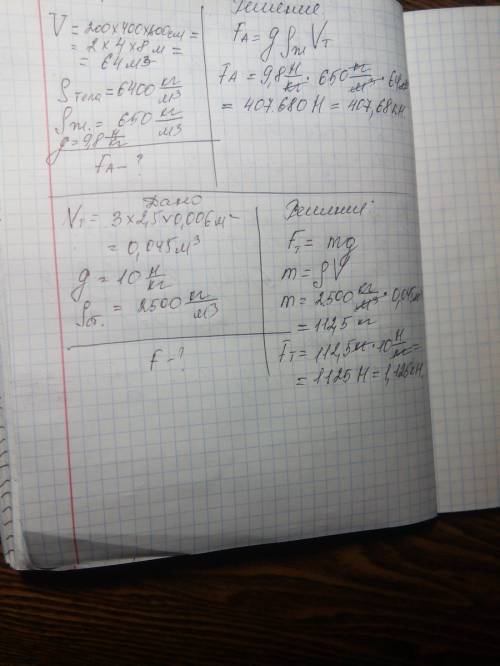 V = 200×400×800см =
= 2 × 4 × 8 м =
= 64 м3
ρ тела = 6400 кг/м3
ρ ж. = 650 кг/м3
g = 9,8 Н/кг
FA - ?
Решение:
FA = g ρж VТ
FA = 9,8 Н/кг · 650 кг/м3 · 64 м3
= 407.680 Н = 407,68 кН.
Дано
VТ = 3 × 2,5 × 0,006 м
= 0,045 м3
g = 10 Н/кг
ρст. = 2500 кг/м3
F - ?
Решение:
FТ = mg
m = ρV
m = 2500 кг/м3 · 0,045 м3
= 112,5 кг
FТ = 112,5 кг · 10 Н/кг =
= 1125 Н = 1,125 кН